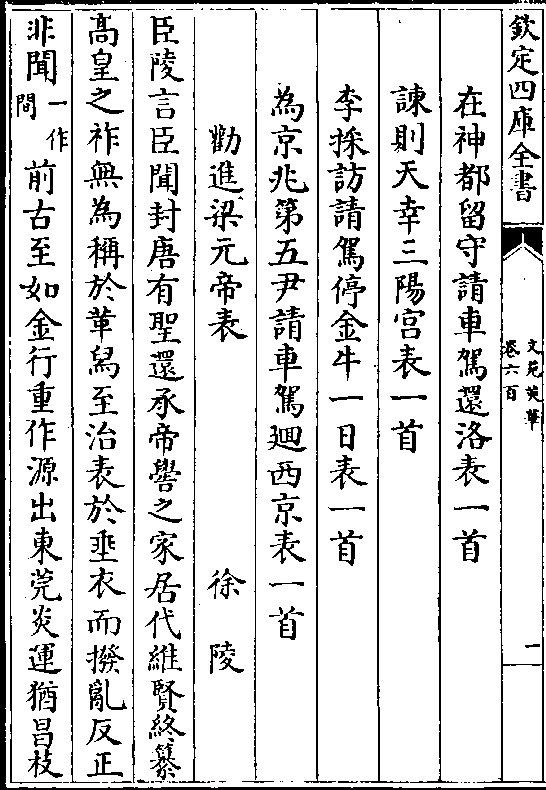 欽定四庫全書
文苑英華
卷六百
一
在神都留守請車駕還洛表一首
諫則天幸三陽宮表一首
李採訪請駕停金牛一日表一首
為京兆第五尹請車駕廻西京表一首
勸進梁元帝表 徐陵
臣陵言臣聞封唐有聖還承帝嚳之家居代維賢終纂
高皇之祚無為稱於革舄至治表於垂衣而撥亂反正
非聞一作間前古至如金行重作源出東莞炎運猶昌枝